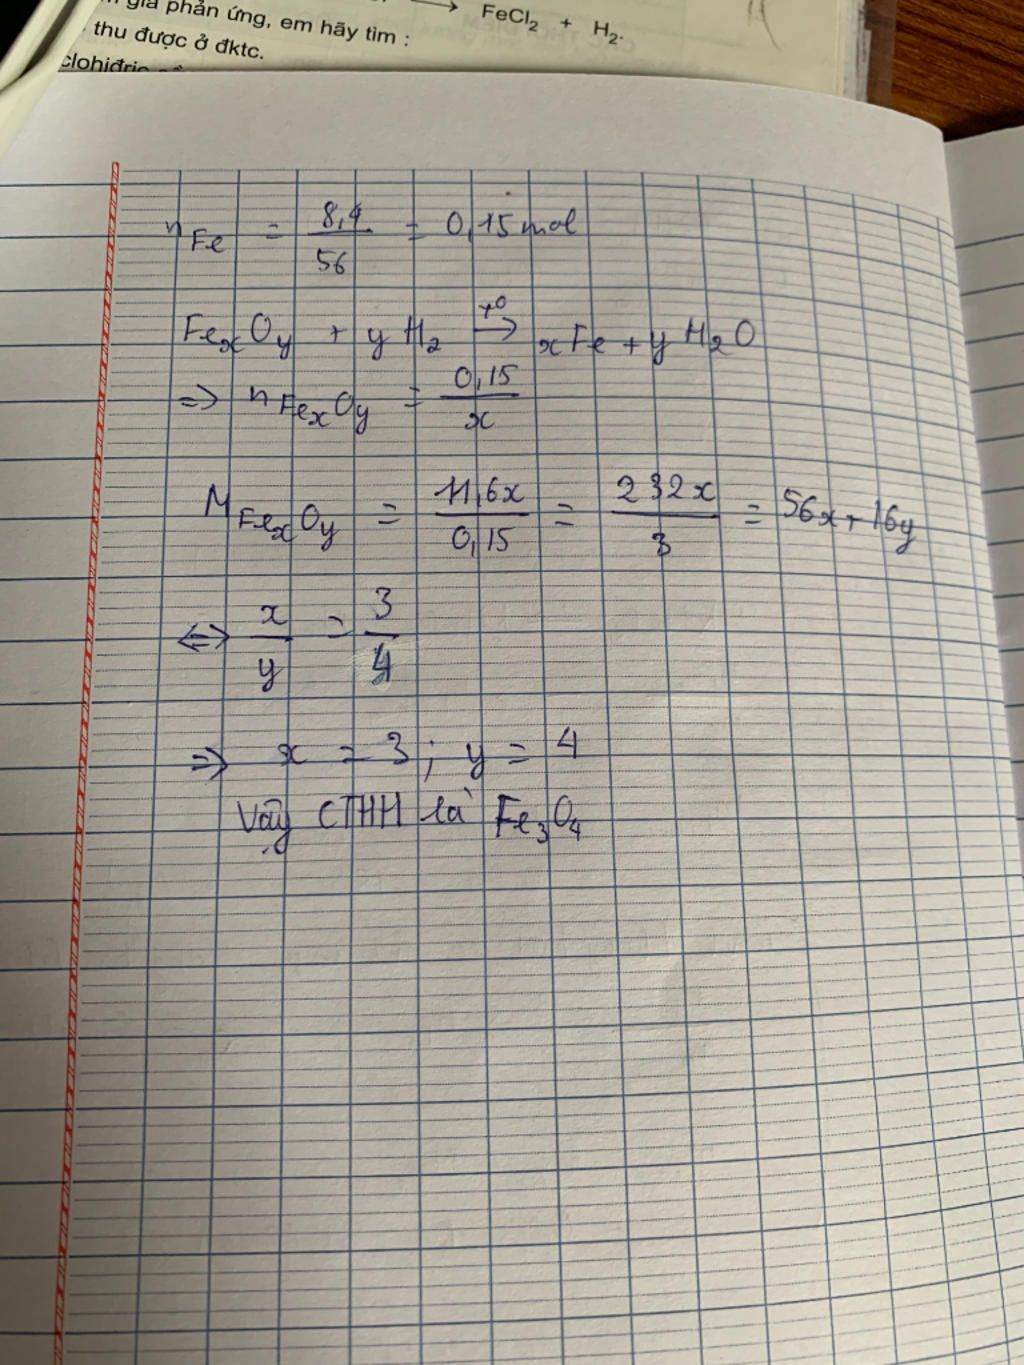 ⟶ FeCl2 + H2.
gia phản ứng, em hãy tìm :
thu được ở đktc.
clohiđric
nFe = 8,4/56 = 0,15 mol
FexOy + yH2 →(t°) xFe + yH2O
=> nFexOy = 0,15/x
MFexOy = 11,6x/0,15 = 232x/3 = 56x + 16y
<=> x/y = 3/4
=> x = 3 ; y = 4
Vậy CTHH là Fe3O4